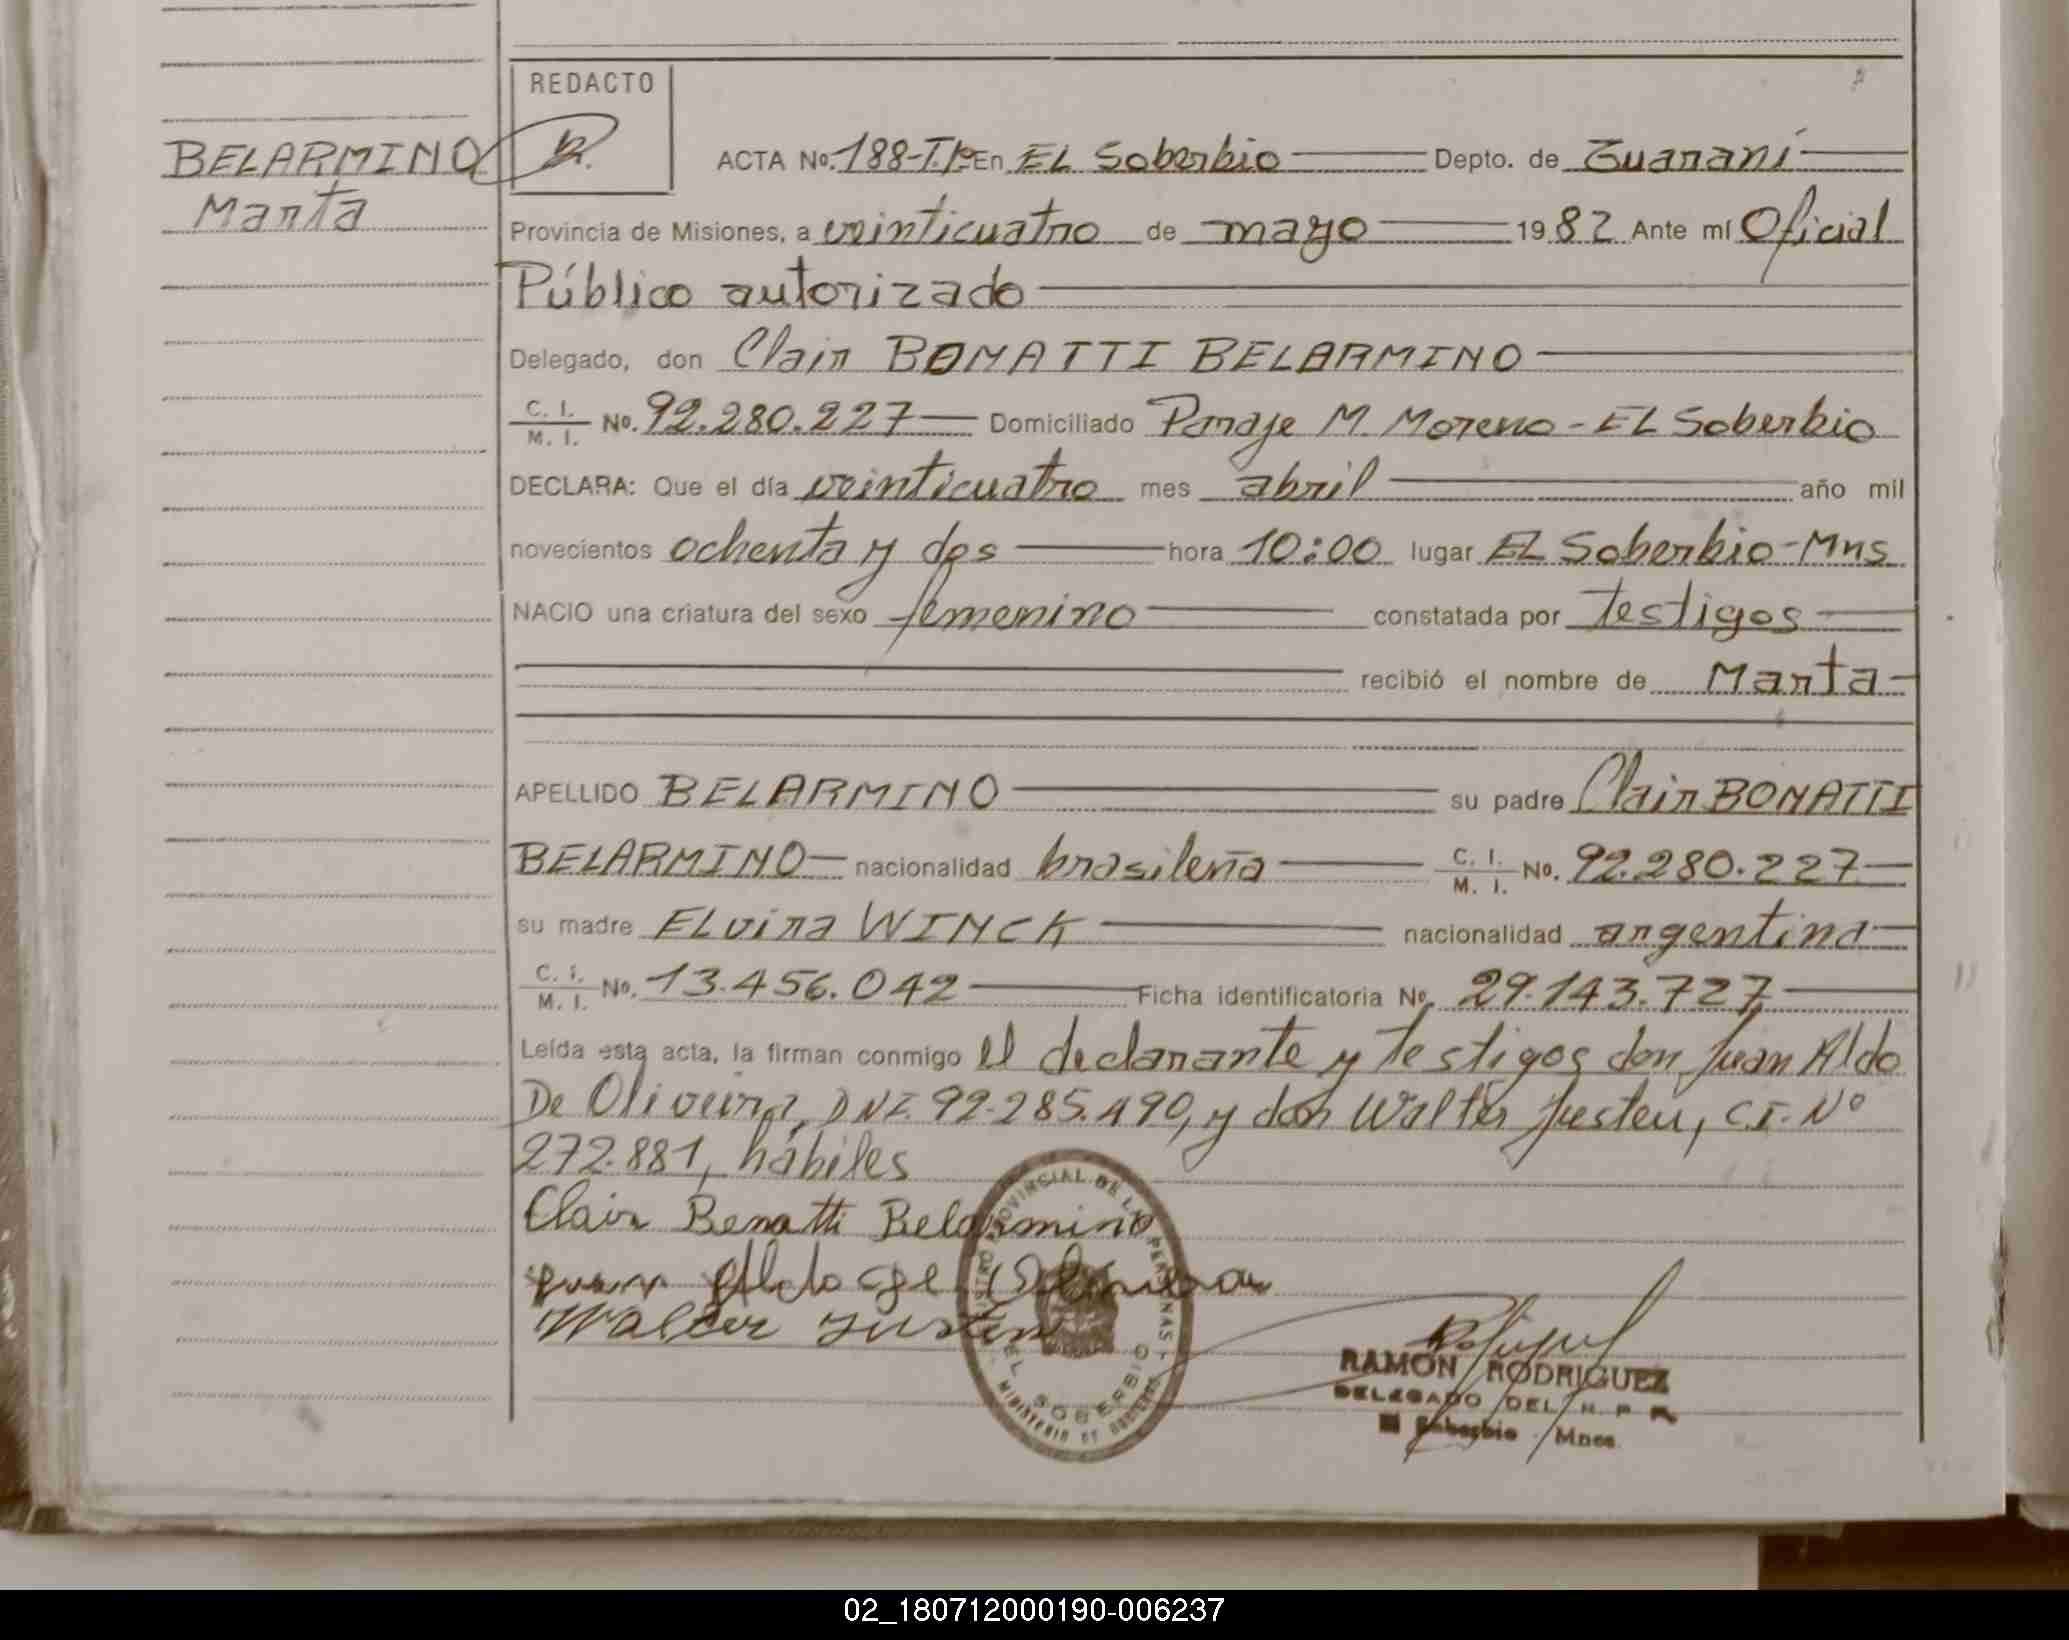 REDACTO
BELARMINO
Marta
ACTA No. 188-T.1º En EL Soberbio Depto. de Guaraní
Provincia de Misiones, a veinticuatro de mayo 1982 Ante mí Oficial
Público autorizado
Delegado, don Clair BONATTI BELARMINO
C. I. / M. I. No. 92.280.227 Domiciliado M. Moreno - EL Soberbio
DECLARA: Que el día veinticuatro mes abril año mil
novecientos ochenta y dos hora 10:00 lugar EL Soberbio-Mns
NACIO una criatura del sexo femenino constatada por testigos
recibió el nombre de Marta
APELLIDO BELARMINO su padre Clair BONATTI
BELARMINO nacionalidad brasileña C. I. / M. I. No. 92.280.227
su madre ELvira WINCK nacionalidad argentina
C. I. / M. I. No. 13.456.042 Ficha identificatoria No. 29.143.727
Leída esta acta, la firman conmigo el declarante y testigos don Juan Aldo
De Oliveira, DNI. 92.285.490, y don Walter Justen, C.I. Nº
272.881, hábiles
Clair Bonatti Belarmino
Juan Aldo de Oliveira
Walter Justen
PROVINCIAL DE LAS PERSONAS
EL SOBERBIO
MINISTERIO DE GOBIERNO
RAMON RODRIGUEZ
DELEGADO DEL R. P. P.
El Soberbio - Mnes.
02_180712000190-006237